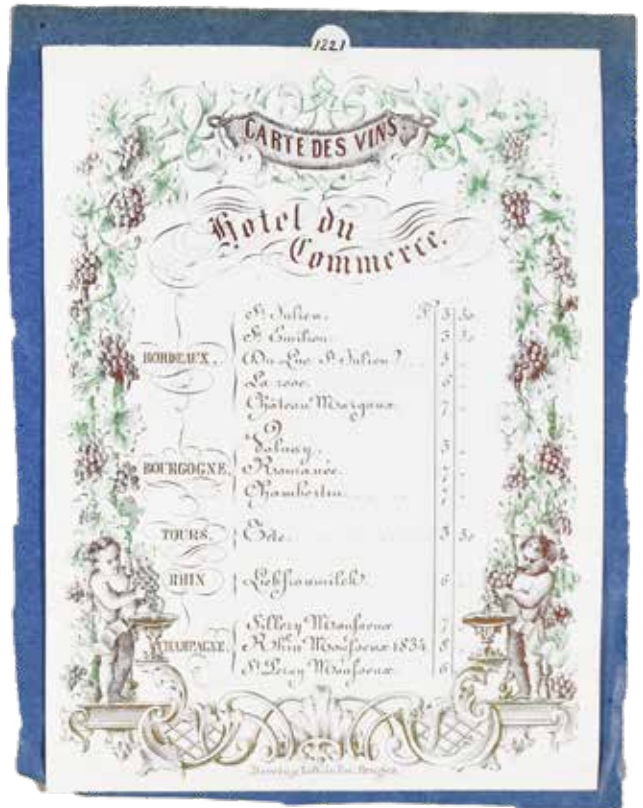 1221
CARTE DES VINS.
Hotel du
Commerce.
BORDEAUX.
St Julien. F 3 50
St Emilion. 3 50
(Du Luc St Julien)
La rose. 6 "
Château Margaux. 7 "
BOURGOGNE.
Volnay.
Romanée.
Chambertin
TOURS.
3 50
RHIN
Liebfraumilch. 6
CHAMPAGNE.
Sillery Mousseux 7
Rhin Mousseux 1834 8
St Peray Mousseux 6